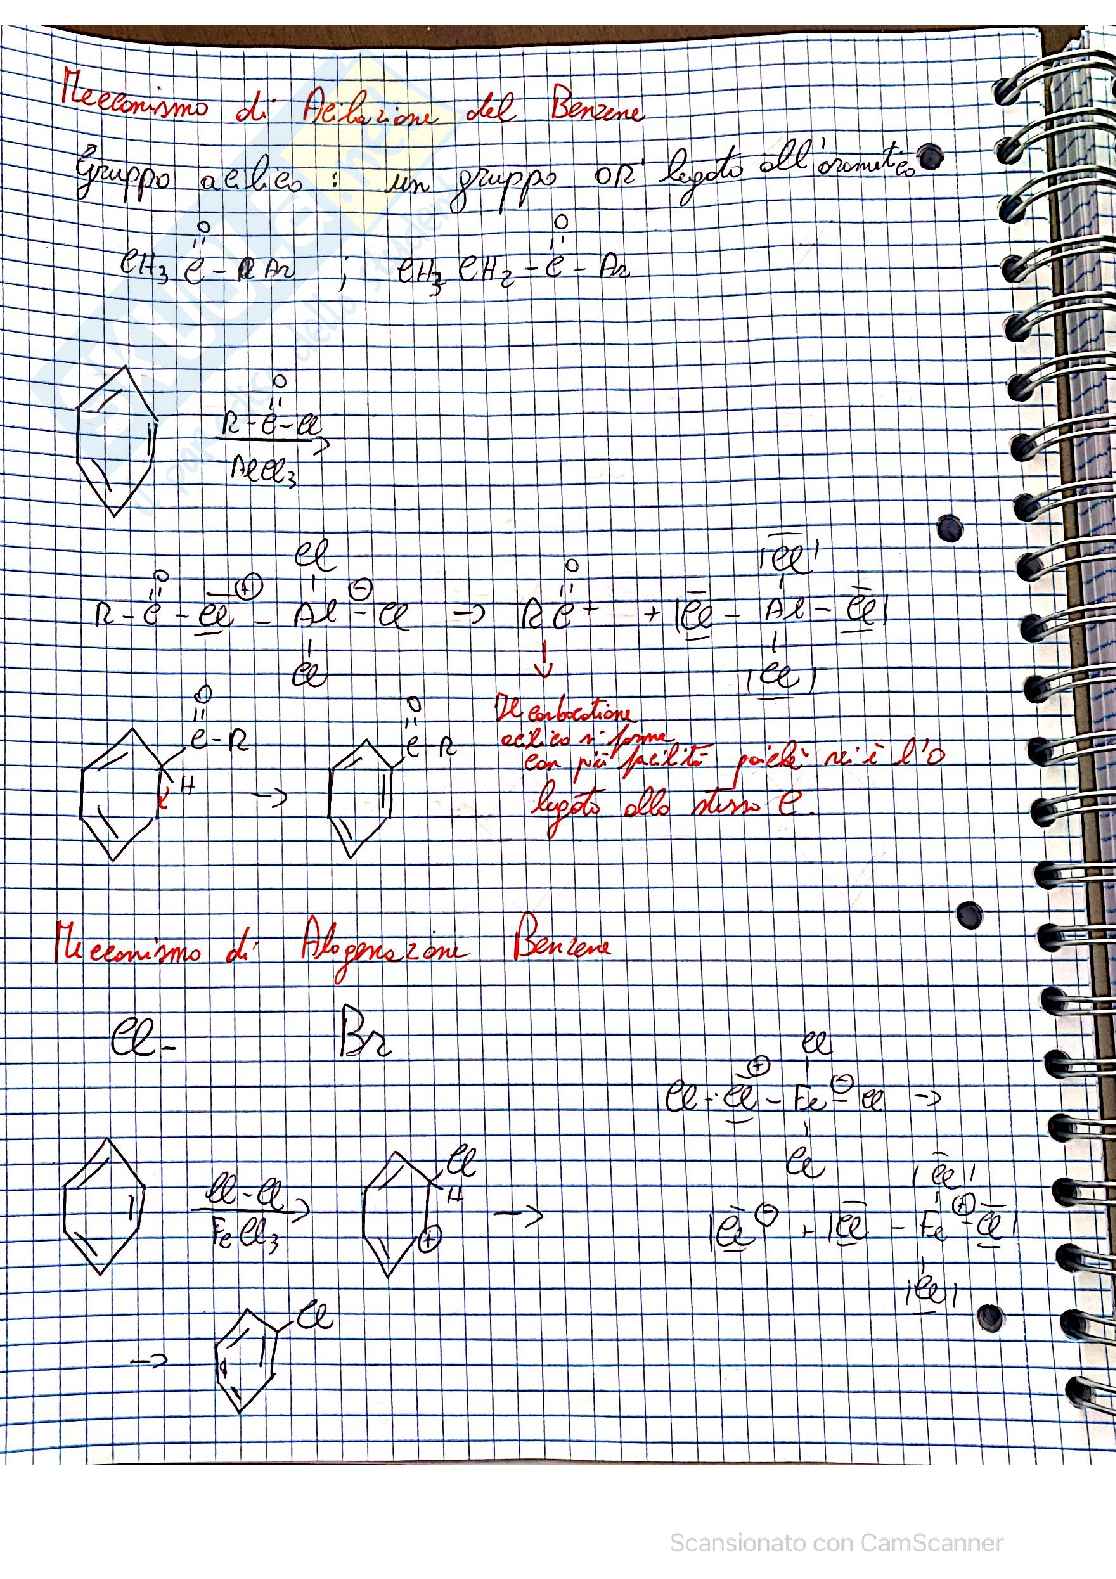 Meccanismo di Acilazione del Benzene
Gruppo acilico : un gruppo legato all'aromatico
O O
CH3 C - Ar ; CH3 CH2 - C - Ar
O
R - C - Cl
AlCl3
Cl |Cl|
O ⊕ ⊖ O
R - C - Cl - Al - Cl → R C + + |Cl - Al - Cl|
Cl |Cl|
O O
C - R C - R
H →
Il carbocatione
acilico si forma
con più facilità poichè vi è l'O
legato allo stesso C.
Meccanismo di Alogenazione Benzene
Cl - Br
Cl
⊕ ⊖
Cl - Cl - Fe - Cl →
Cl
Cl - Cl
FeCl3
Cl
H
⊕
→
|Cl|
|Cl ⊖ + |Cl - Fe ⊕ - Cl|
|Cl|
→ Cl
Scansionato con CamScanner